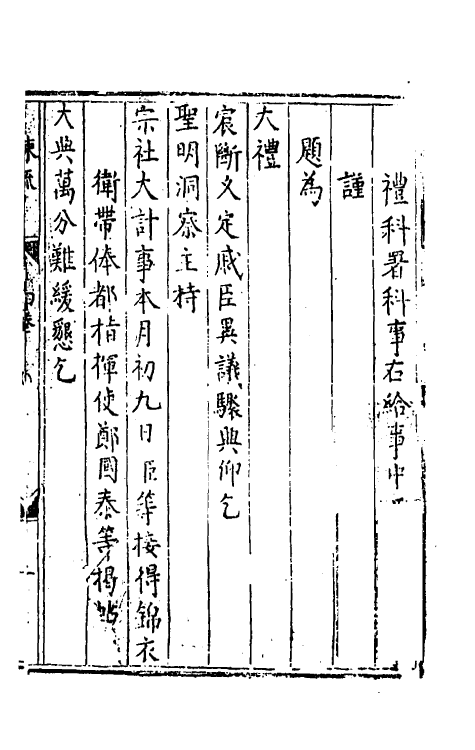 禮科署科事右給事中
謹
題為
大禮
宸斷久定戚臣異議驟興仰乞
聖明洞察主持
宗社大計事本月初九日臣等接得錦衣
衛帶俸都指揮使鄭國泰等揭帖
大典萬分難緩懇乞